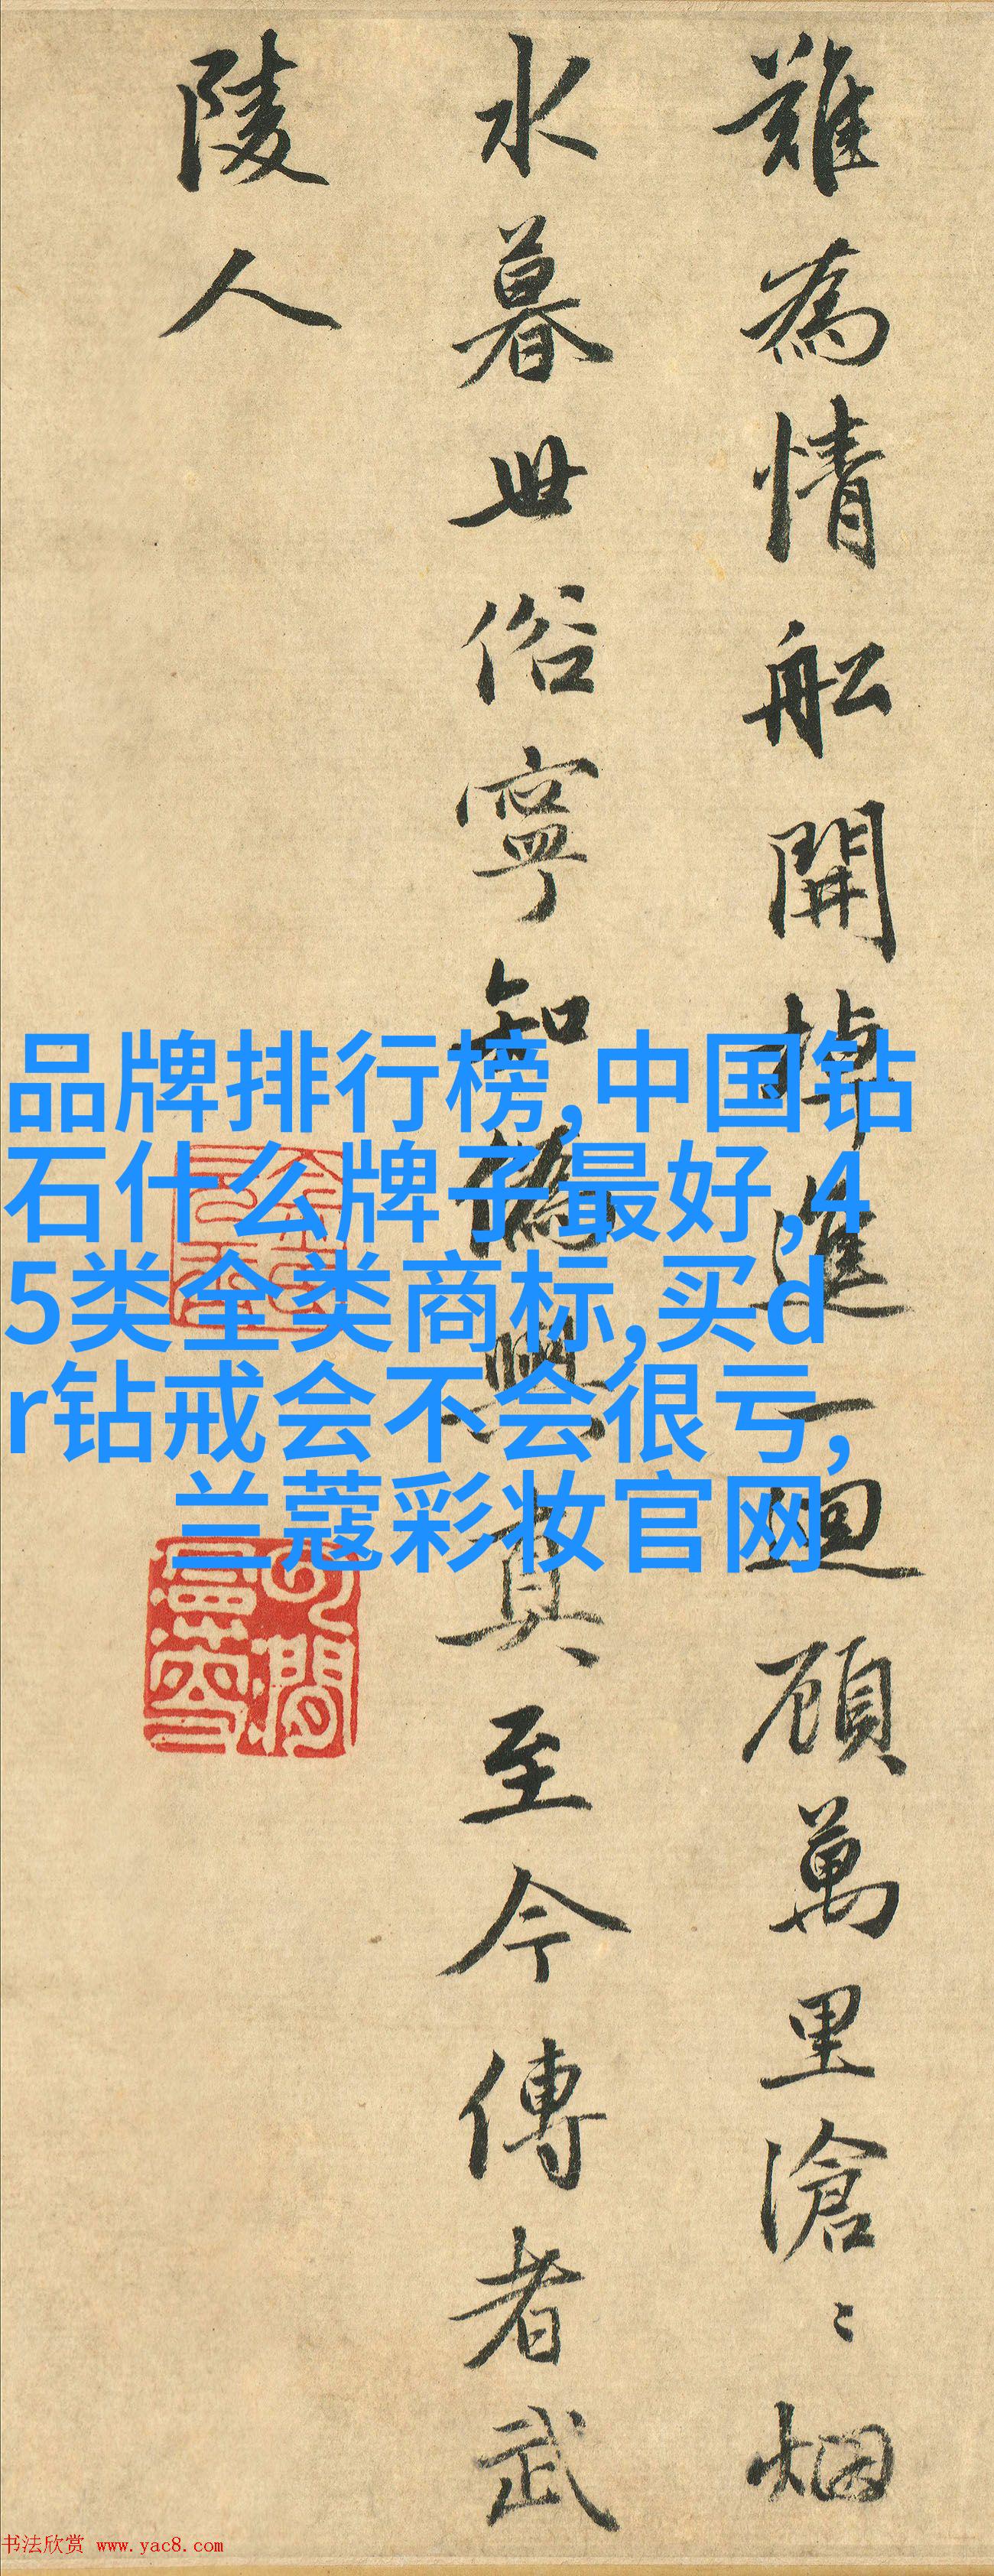 難為情舩開掉進一迴顧萬里滄〻烟
水暮世俗寧知偽與真至今傳者武
陵人
品牌排行榜,中国钻
石什么牌子最好,4
5类全类商标,买d
r钻戒会不会很亏,
兰蔻彩妆官网
书法欣赏 www.yac8.com